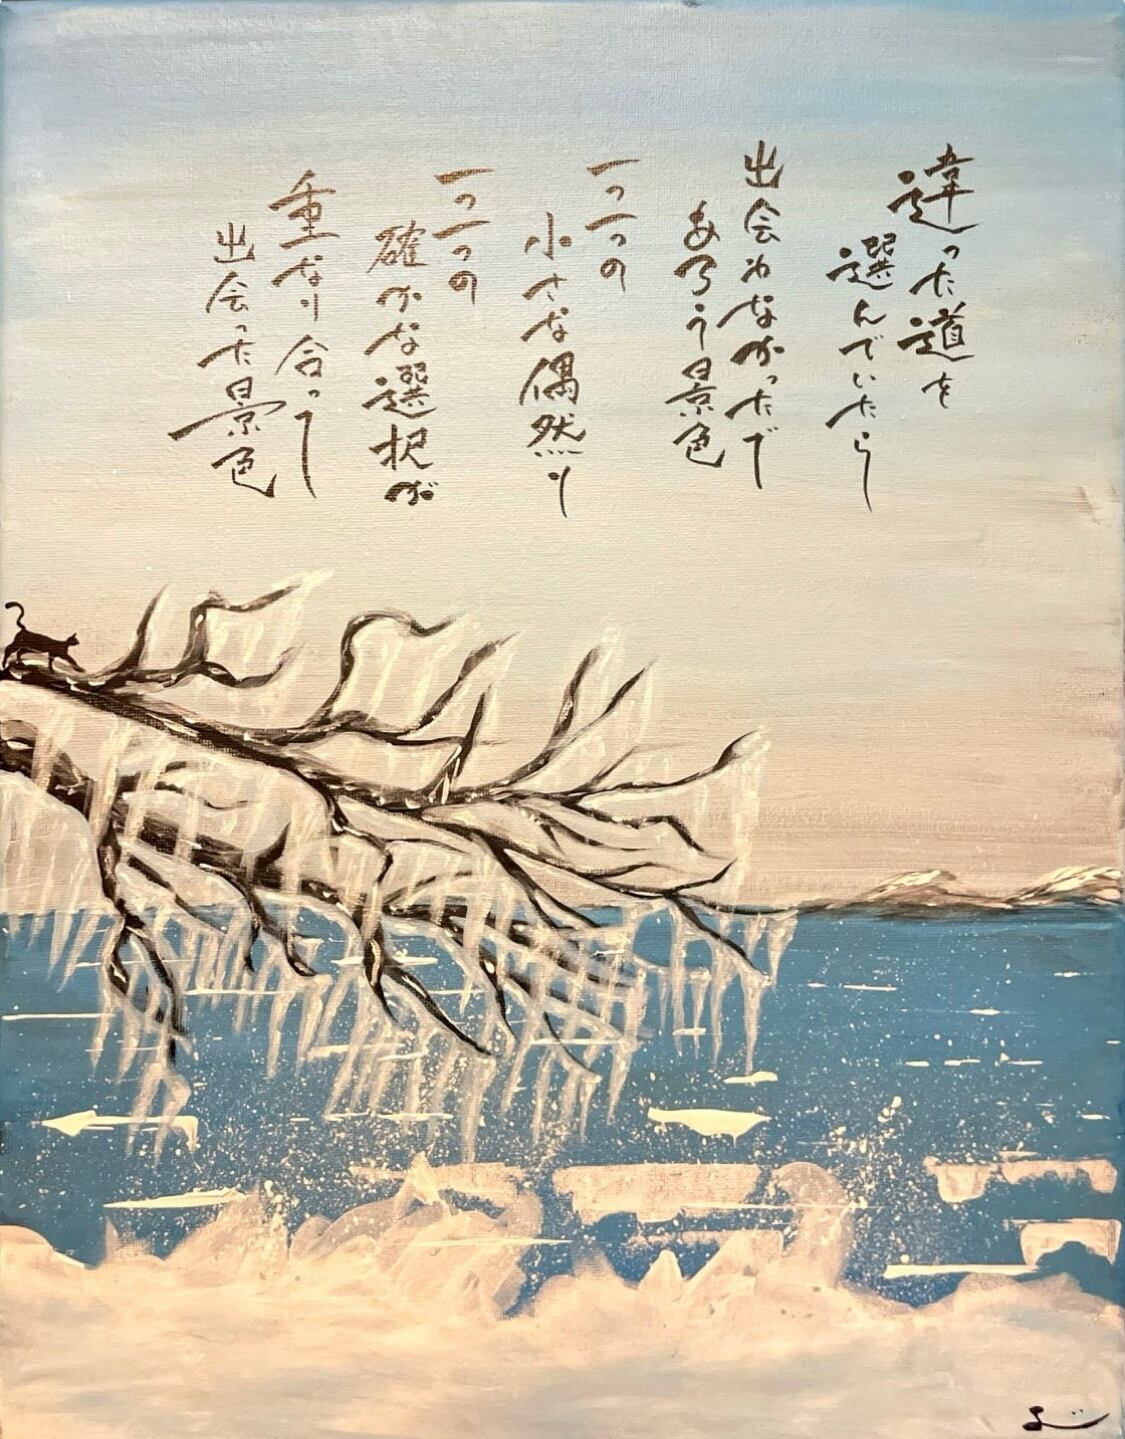 違った道を
選んでいたら
出会わなかったで
あろう景色
一つ一つの
小さな偶然り
一つ一つの
確かな選択が
重なり合って
出会った景色